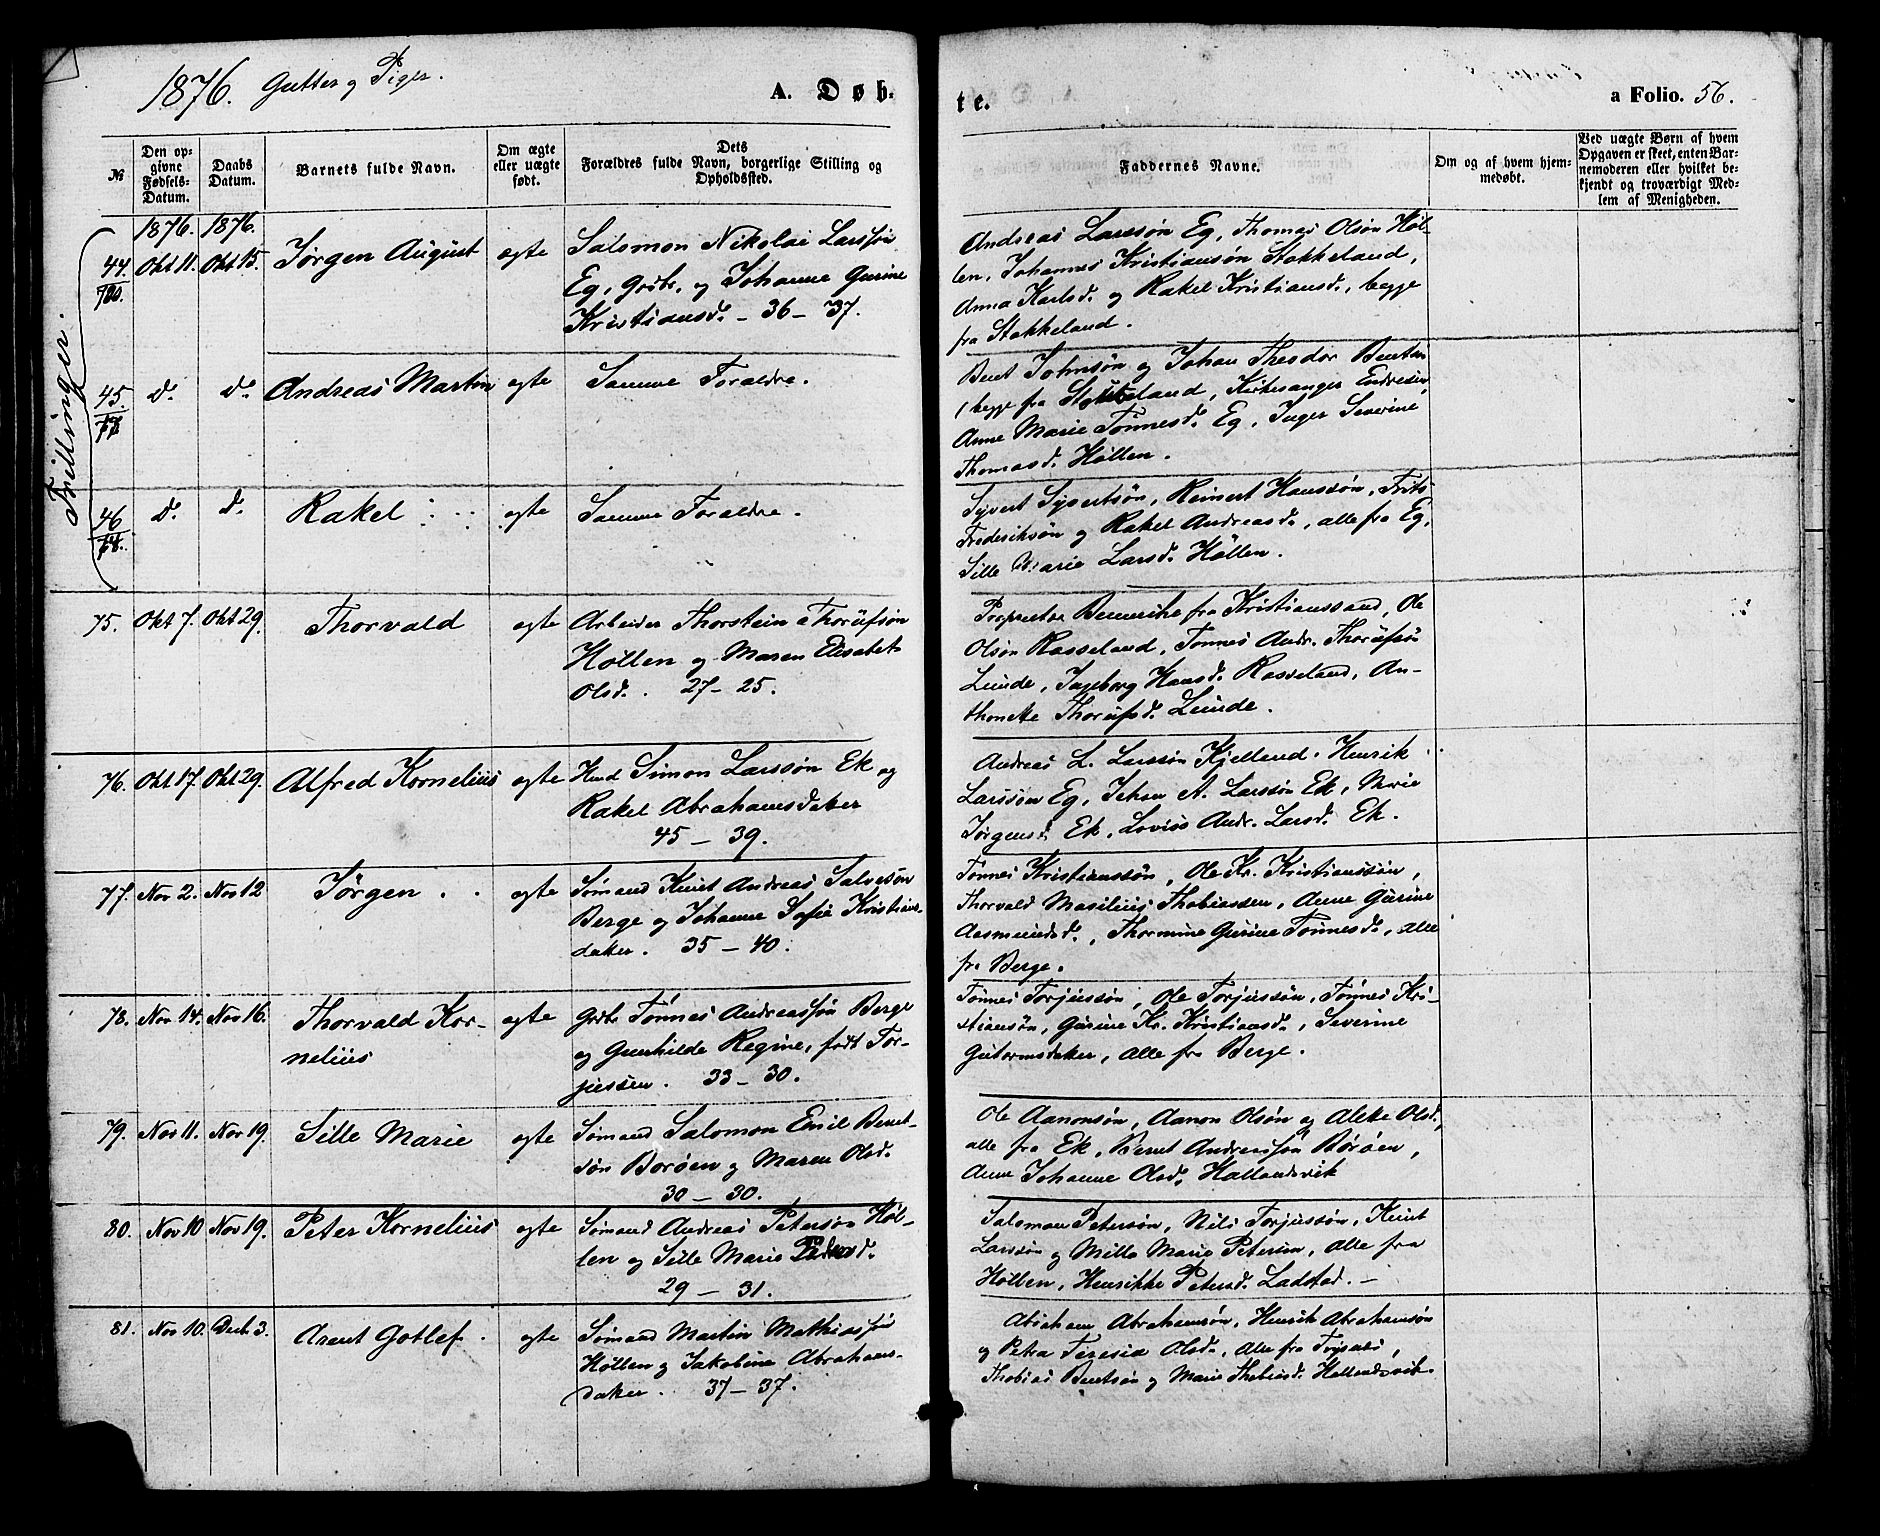 1876. Gutter og Piger.
A. Døb-
te.
a Folio. 56.
№
Den op-
givne
Fødsels-
Datum.
Daabs
Datum.
Barnets fulde Navn.
Om ægte
eller uægte
født.
Dets
Forældres fulde Navn, borgerlige Stilling og
Opholdssted.
Faddernes Navne.
Om og af hvem hjem-
medøbt.
Ved uægte Børn af hvem
Opgaven er skeet, enten Bar-
nemoderen eller hvilket be-
kjendt og troværdigt Med-
lem af Menigheden.
Trillinger.
1876. 1876.
44. Okt 11. Okt 15. Jørgen August ægte Salomon Nikolai Larssøn
Eg, Grdbr. og Johanne Gurine
Kristiansd. - 36 - 37.
Andreas Larssøn Eg, Thomas Olsøn Høl-
len, Johannes Kristiansøn Stokkeland,
Anna Karlsd. og Rakel Kristiansd., begge
fra Stokkeland.
45. d. d. Andreas Martin ægte Samme Forældre.
Bent Johnsøn og Johan Theodor Bentsen
begge fra Stokkeland, Kirkesanger Endresen,
Anne Marie Tønnesd. Eg, Inger Severine
Thomasd. Høllen.
46 d. d. Rakel ægte Samme Forældre.
Syvert Syvertsøn, Reinert Hanssøn, Frits
Frederiksøn og Rakel Andreasd., alle fra Eg,
Sille Marie Larsd. Høllen.
75. Okt 7. Okt 29. Thorvald ægte Arbeider Thorstein Thorufsøn
Høllen og Maren Elisabet
Olsd. 27 - 25.
Proprietær Benneche fra Kristianssand, Ole
Olsøn Rosseland, Tønnes Andr. Thorufsøn
Lunde, Ingeborg Hansd. Rosseland, An-
thonette Thorufsd. Lunde.
76. Okt 17. Okt 29. Alfred Kornelius ægte Hmd Simon Larssøn Ek og
Rakel Abrahamsdaker
45 - 39.
Andreas L. Larssøn Kjelland, Henrik
Larssøn Eg, Johan A. Larssøn Ek, Marie
Jørgensd. Ek, Lovise Andr. Larsd. Ek.
77. Nov 2. Nov 12 Jørgen ægte Sømand Knut Andreas Salvesøn
Berge og Johanne Sofie Kristians-
dater. 35 - 40.
Tønnes Kristianssøn, Ole Kr. Kristianssøn,
Thorvald Masilius Thobiassen, Anne Gurine
Aasmundsd., Thormine Gurine Tønnesd., alle
fra Berge.
78. Nov 14. Nov 16. Thorvald Kor-
nelius ægte Grdbr Tønnes Andreassøn Berge
og Gunhilde Regine, født Tor-
jussen. 33 - 30.
Tønnes Torjussøn, Ole Torjussøn, Tønnes Kri-
stiansøn, Gurine Kr. Kristiansd., Severine
Gutormsdater, alle fra Berge.
79. Nov 11. Nov 19. Sille Marie ægte Sømand Salomon Emil Bernt-
søn Borøen og Maren Olsd.
30 - 30.
Ole Aanonsøn, Aanon Olsøn og Aleke Olsd.,
alle fra Ek, Bernt Andreassøn Borøen,
Anne Johanne Olsd. Hallandsvik
80. Nov 10 Nov 19. Peter Kornelius ægte Sømand Andreas Petersøn Høl-
len og Sille Marie
29 - 31.
Salomon Petersøn, Nils Torjussøn, Knut
Larssøn og Mille Marie Petersen, alle fra
Høllen, Henrikke Petersd. Ladstad. -
81. Nov 10. Decb. 3. Arent Gotlef. ægte Sømand Martin Mathiassøn
Høllen og Jakobine Abrahams-
dater. 37 - 37.
Abraham Abrahamsøn, Henrik Abrahamsøn
og Petra Teresia Olsd., alle fra Trysnes,
Thobias Berntsøn og Marie Thobiasd. Hollandsvik.